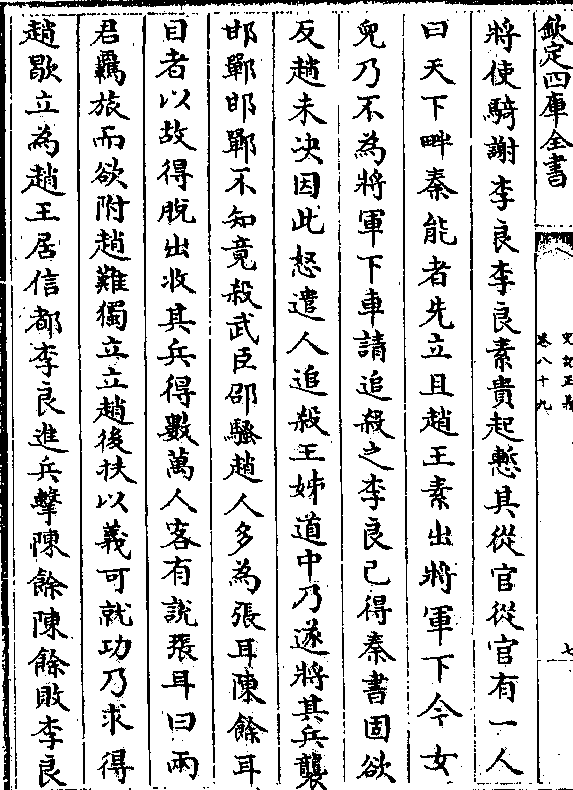 欽定四庫全書
史記正義
卷八十九
七
將使騎謝李良李良素貴起慙其從官從官有一人
曰天下畔秦能者先立且趙王素出將軍下今女
兒乃不為將軍下車請追殺之李良已得秦書固欲
反趙未决因此怒遣人追殺王姊道中乃遂將其兵襲
邯鄲邯鄲不知竟殺武臣邵騷趙人多為張耳陳餘耳
目者以故得脫出收其兵得數萬人客有說張耳曰兩
君羈旅而欲附趙難獨立立趙後扶以義可就功乃求得
趙歇立為趙王居信都李良進兵擊陳餘陳餘敗李良